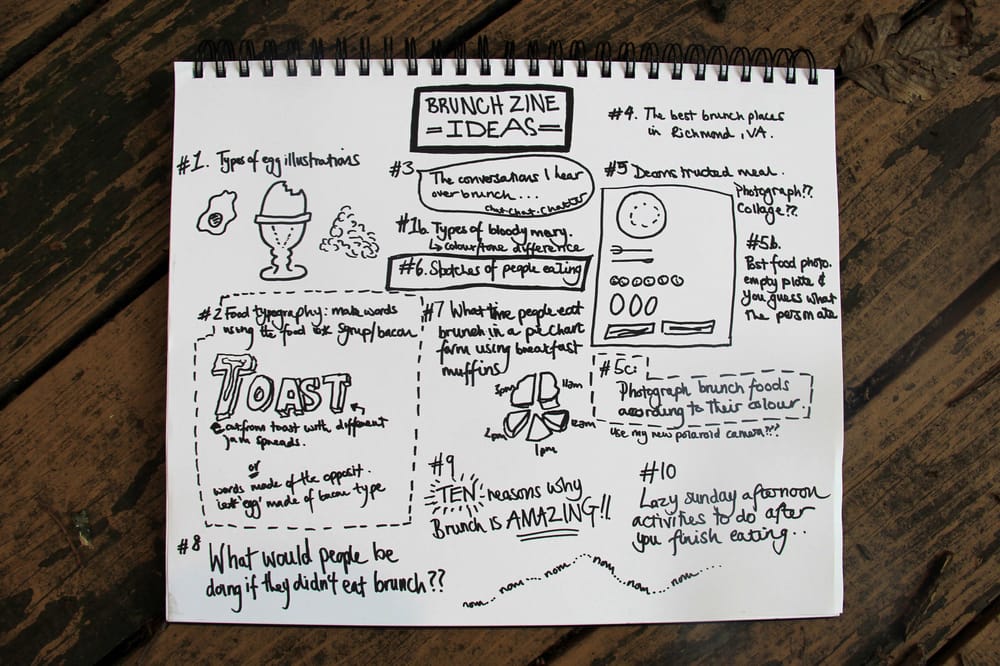 BRUNCH ZINE
=IDEAS=
#1. Types of egg illustrations
#3
The conversations I hear
over brunch...
chat.chat.chatter
#1b. Types of bloody mary.
↳ colour/tone difference
#6. Sketches of people eating
#4. The best brunch places
in Richmond, VA.
#5 Deconstructed meal.
Photograph??
Collage??
#5b.
Post food photo.
empty plate &
you guess what
the person ate
#2 Food typography: make words
using the food ex syrup/bacon
TOAST
cut from toast with different
jam spreads.
or
words made of the opposit.
'egg' made of bacon type
#7 What time people eat
brunch in a pie chart
form using breakfast
muffins
3pm
11am
12am
1pm
2pm
#5c:
Photograph brunch foods
according to their colour.
use my new polaroid camera???
#9
TEN reasons why
Brunch is AMAZING!!
#10
Lazy sunday afternoon
activities to do after
you finish eating..
#8
What would people be
doing if they didn't eat brunch??
nom... nom... nom... nom... nom...